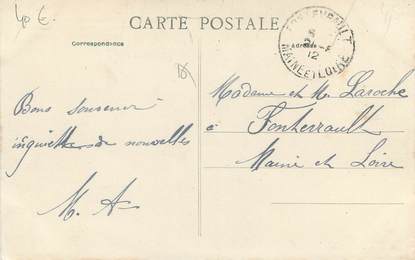 40 €
CARTE POSTALE
Correspondance
Adresse
FONTEVRAULT
MAINE ET LOIRE
12
Bons souvenirs
inquiette de nouvelles
M. A
Madame et M. Laroche
à
Fontevrault
Maine et Loire